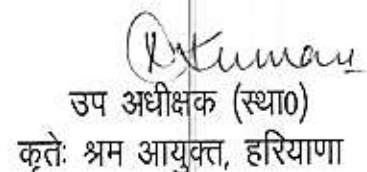 RKumar
उप अधीक्षक (स्था0)
कृतेः श्रम आयुक्त, हरियाणा